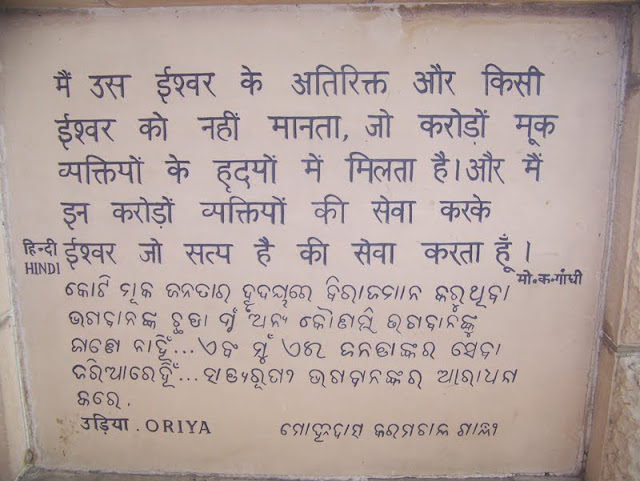 मैं उस ईश्वर के अतिरिक्त और किसी
ईश्वर को नहीं मानता, जो करोड़ों मूक
व्यक्तियों के हृदयों में मिलता है। और मैं
इन करोड़ों व्यक्तियों की सेवा करके
ईश्वर जो सत्य है की सेवा करता हूँ।
हिन्दी
HINDI
मो॰क॰गाँधी
କୋଟି ମୂକ ଜନତାର ହୃଦୟରେ ବିରାଜମାନ କରୁଥିବା
ଭଗବାନଙ୍କ ଛଡା ମୁଁ ଅନ୍ୟ କୌଣସି ଭଗବାନଙ୍କୁ
ନାହିଁ... ଏବଂ ମୁଁ ଏଇ ଜନତାଙ୍କର ସେବା
ଭଗବାନଙ୍କର
କରେ.
उड़िया. ORIYA
ମୋହନଦାସ କରମଚାନ୍ଦ ଗାନ୍ଧୀ